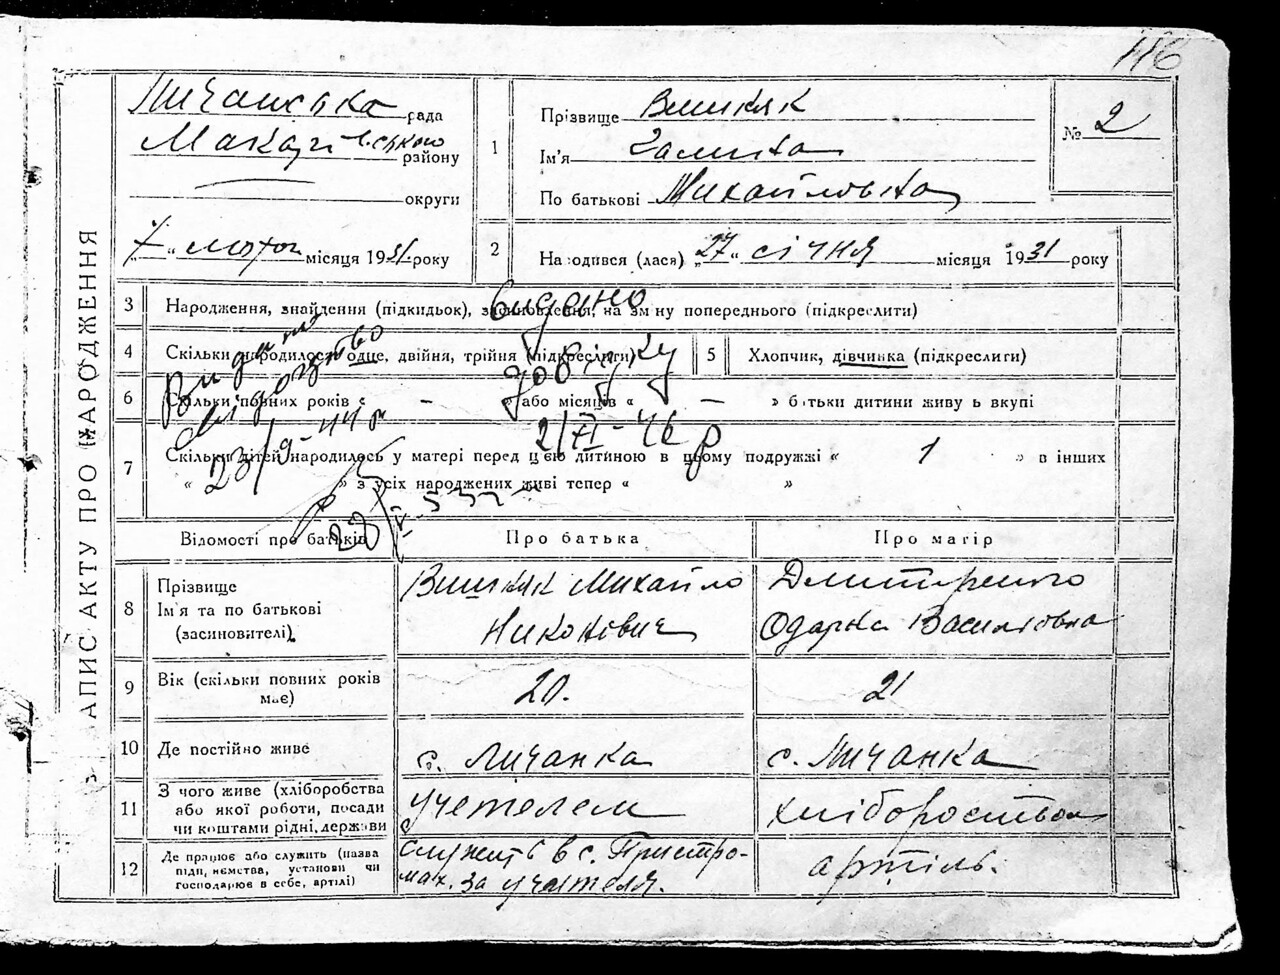 116
ЗАПИС АКТУ ПРО НАРОДЖЕННЯ
Личанська рада
Макарівського району
округи
"7" лютого місяця 1931 року
1
Прізвище Вишняк
Ім'я Галина
По батькові Михайловна
№ 2
2
Народився (лася) "27" січня місяця 1931 року
3 Народження, знайдення (підкидьок), засиновлення, на зміну попереднього (підкреслити)
Видано
4 Скільки народилося одне, двійня, трійня (підкреслити)
5 Хлопчик, дівчинка (підкреслити)
Видано
свідоцтво
довідку
6 Скільки повних років « — » або місяців « — » батьки дитини живуть вкупі
23/9-44 р
2/XI-46 р
7 Скільки дітей народилось у матері перед цією дитиною в цьому подружжі « 1 » в інших
« » з усіх народжених живі тепер « »
Відомості про батьків
Про батька
Про матір
8 Прізвище
Ім'я та по батькові
(засиновителі)
Вишняк Михайло
Никонович
Дмитренко
Одарка Василівна
9 Вік (скільки повних років
має)
20.
21
10 Де постійно живе
с. Личанка
с. Личанка
11 З чого живе (хліборобства
або якої роботи, посади
чи коштами рідні, держави
учетелем
хліборобством
12 Де працює або служить (назва
підприємства, установи чи
господарює в себе, артілі)
служить в с. Пристро-
мах. за учителя.
артіль.